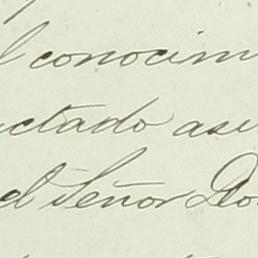 l conocim
ctado ase
el Señor Do